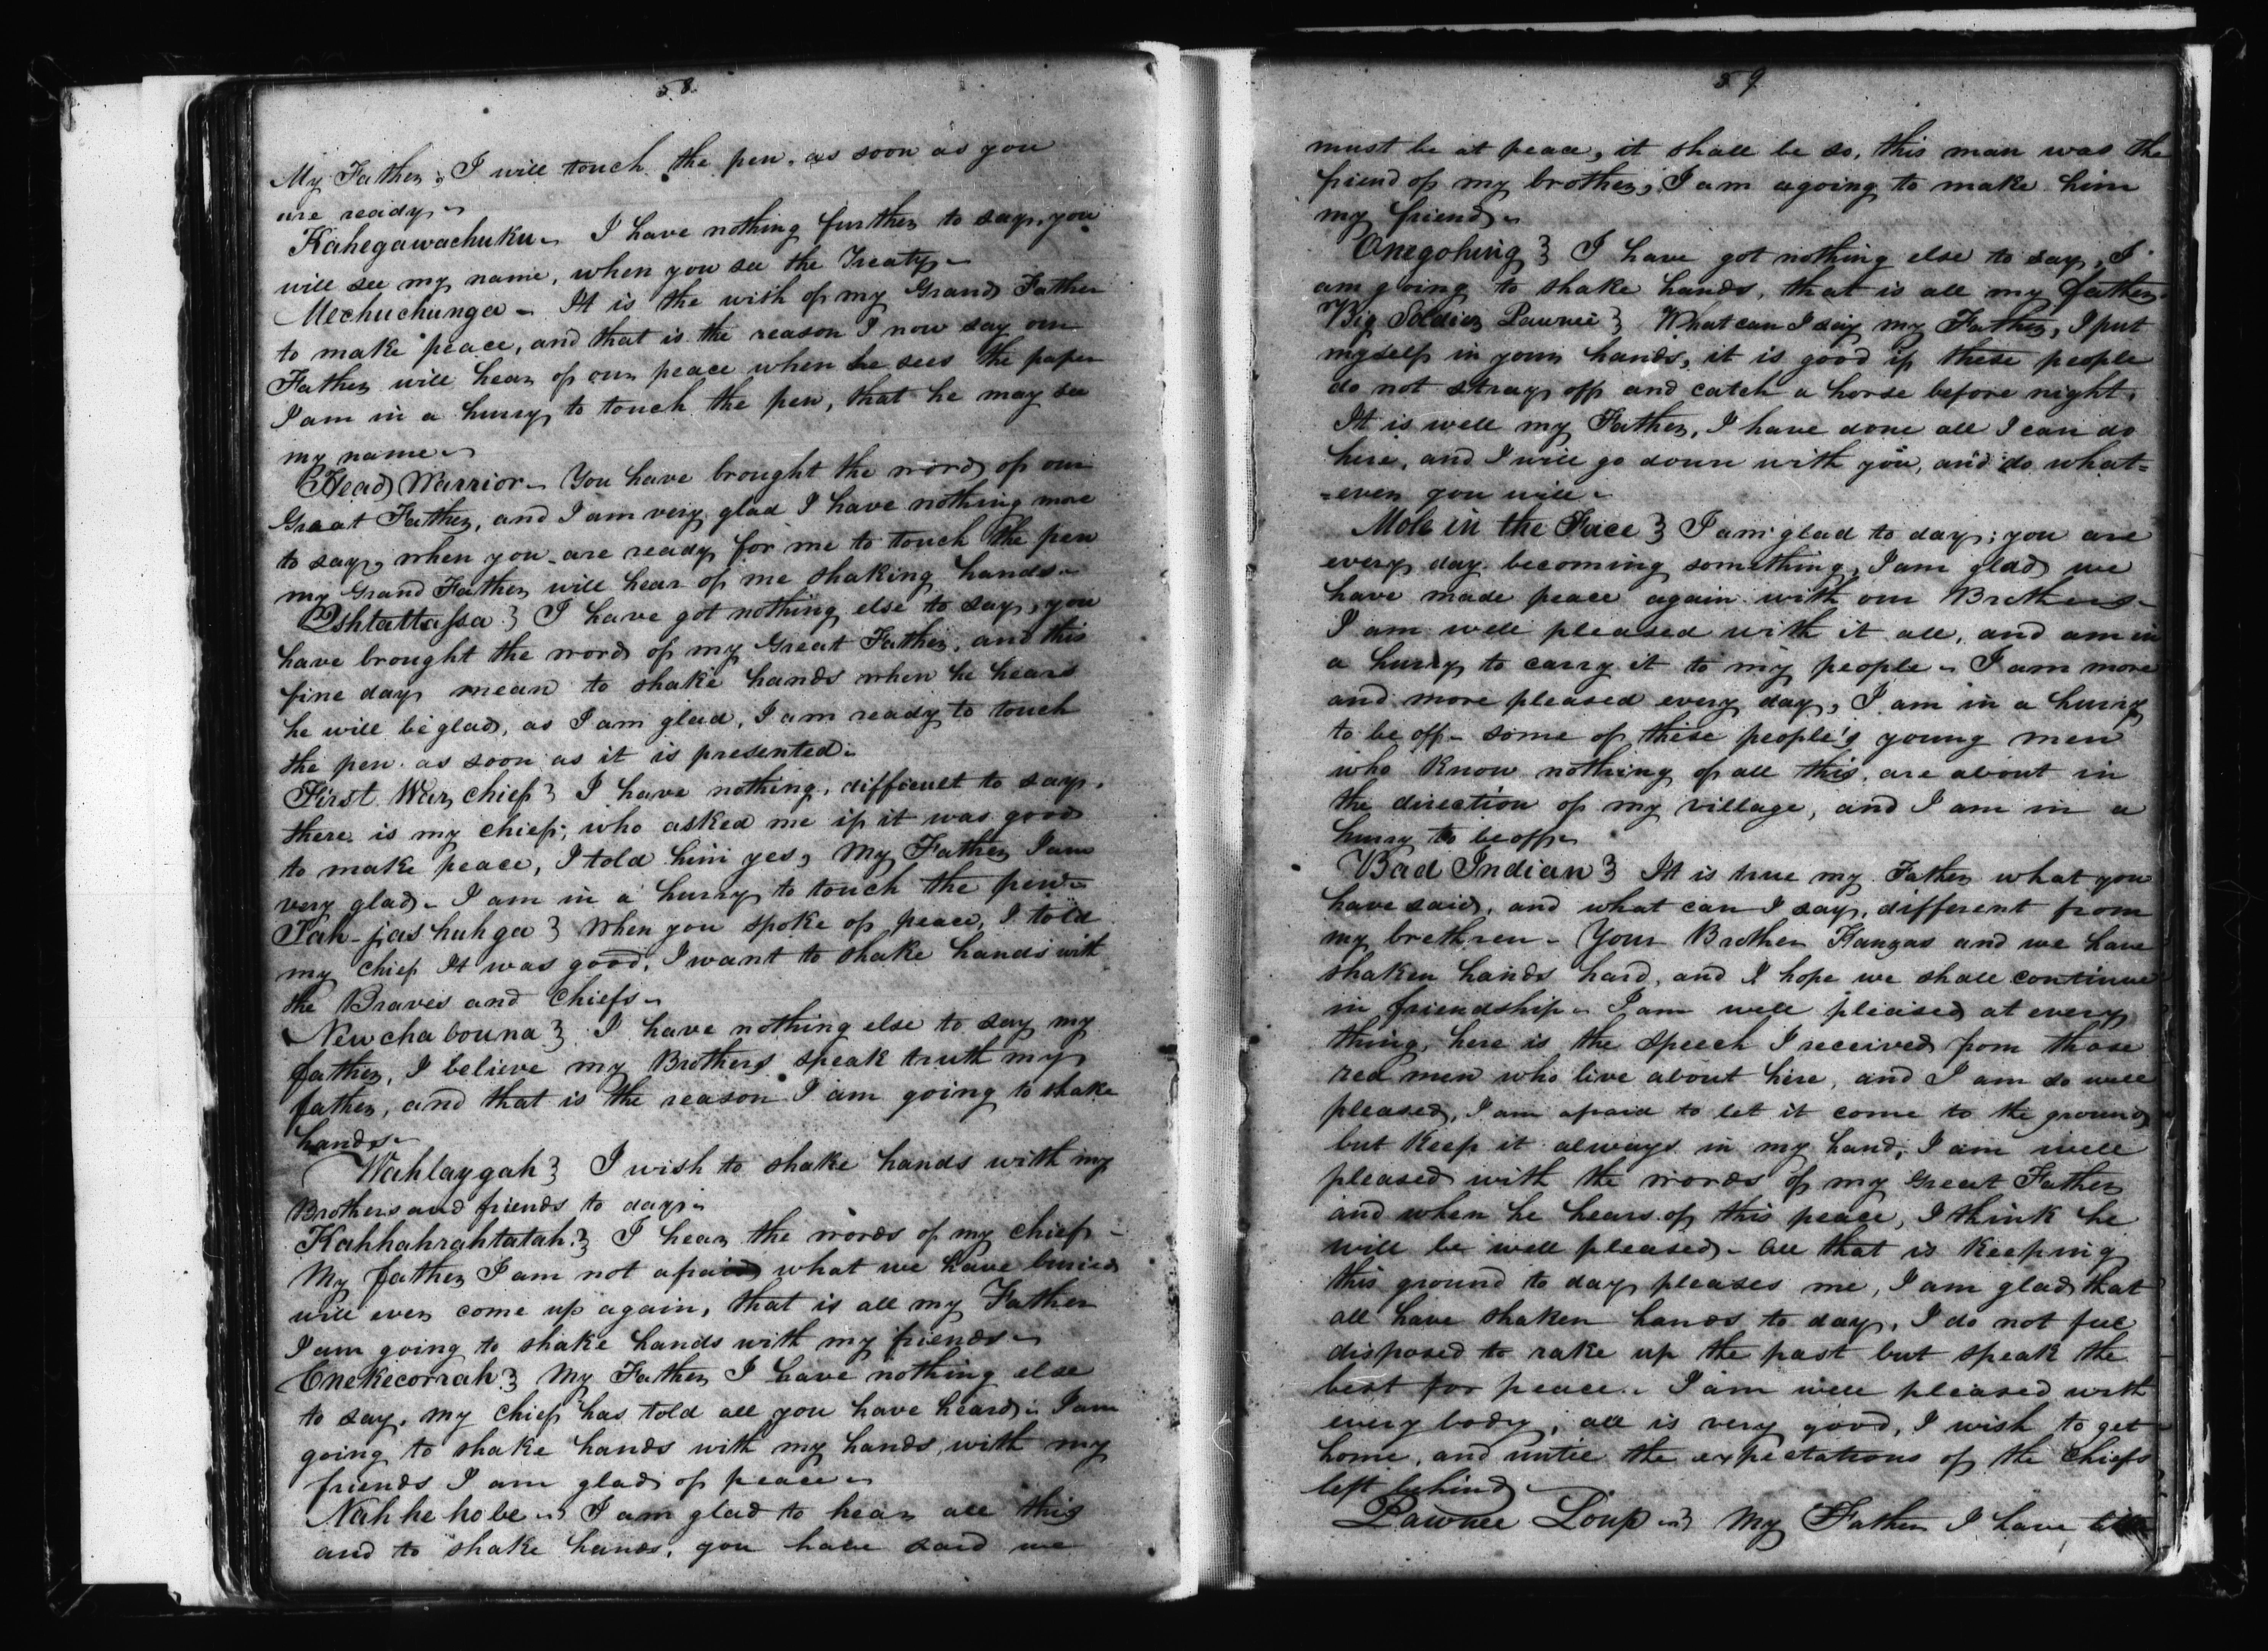 58
My Father, I will touch the pen, as soon as you
are ready.
Kahegawachuku. I have nothing further to say, you
will see my name, when you see the Treaty.
Mechuchunga. It is the wish of my Grand Father
to make peace, and that is the reason I now say our
Father will hear of our peace when he sees the paper
I am in a hurry to touch the pen, that he may see
my name.
Head Warrior. You have brought the word of our
Great Father, and I am very glad I have nothing more
to say, when you are ready for me to touch the pen
my Grand Father will hear of me shaking hands.
I have got nothing else to say, you
have brought the word of my Great Father, and this
fine day mean to shake hands when he hears
he will be glad, as I am glad, I am ready to touch
the pen as soon as it is presented.
First War chief } I have nothing, difficult to say,
there is my chief, who asked me if it was good
to make peace, I told him yes, My Father I am
very glad. I am in a hurry to touch the pen.
Tah-jashuhga } When you spoke of peace, I told
my chief It was good. I want to shake hands with
the Braves and Chiefs.
Newchabouna } I have nothing else to say my
father, I believe my Brothers speak truth my
father, and that is the reason I am going to shake
hands.
Wahlaygah } I wish to shake hands with my
Brothers and friends to day.
Kahhahrahtatah } I hear the words of my chief.
My father I am not afraid what we have buried
will ever come up again, that is all my Father
I am going to shake hands with my friends.
Enekecorrah } My Father I have nothing else
to say, my chief has told all you have heard. I am
going to shake hands with my hands, with my
friends I am glad of peace.
Nahhehobe. } I am glad to hear all this
and to shake hands, you have said we
59
must be at peace, it shall be so, this man was the
friend of my brother, I am agoing to make him
my friend.
Onegohing } I have got nothing else to say, I
am going to shake hands, that is all my father.
Big Soldier Pawnee } What can I say my Father, I put
myself in your hands, it is good if these people
do not stray off and catch a horse before night,
It is well my Father, I have done all I can do
here, and I will go down with you, and do what=
=ever you will.
Mole in the Face } I am glad to day; you are
every day becoming something, I am glad we
have made peace again with our Brothers.
I am well pleased with it all, and am in
a hurry to carry it to my people. I am more
and more pleased every day, I am in a hurry
to be off. some of these people's young men
who know nothing of all this, are about in
the direction of my village, and I am in a
hurry to be off.
Bad Indian } It is true my Father what you
have said, and what can I say, different from
my brethren. Your Brother Kanzas and we have
shaken hands hard, and I hope we shall continue
in friendship. I am well pleased at every
thing, here is the speech I received from those
red men who live about here, and I am so well
pleased, I am afraid to let it come to the ground
but keep it always in my hand, I am well
pleased with the words of my Great Father
and when he hears of this peace, I think he
will be well pleased. All that is keeping
this ground to day pleases me, I am glad that
all have shaken hands to day, I do not feel
disposed to rake up the past but speak the
best for peace. I am well pleased with
every body, all is very good, I wish to get
home, and until the expectations of the Chiefs
left behind.
Pawnee Loup. } My Father I have